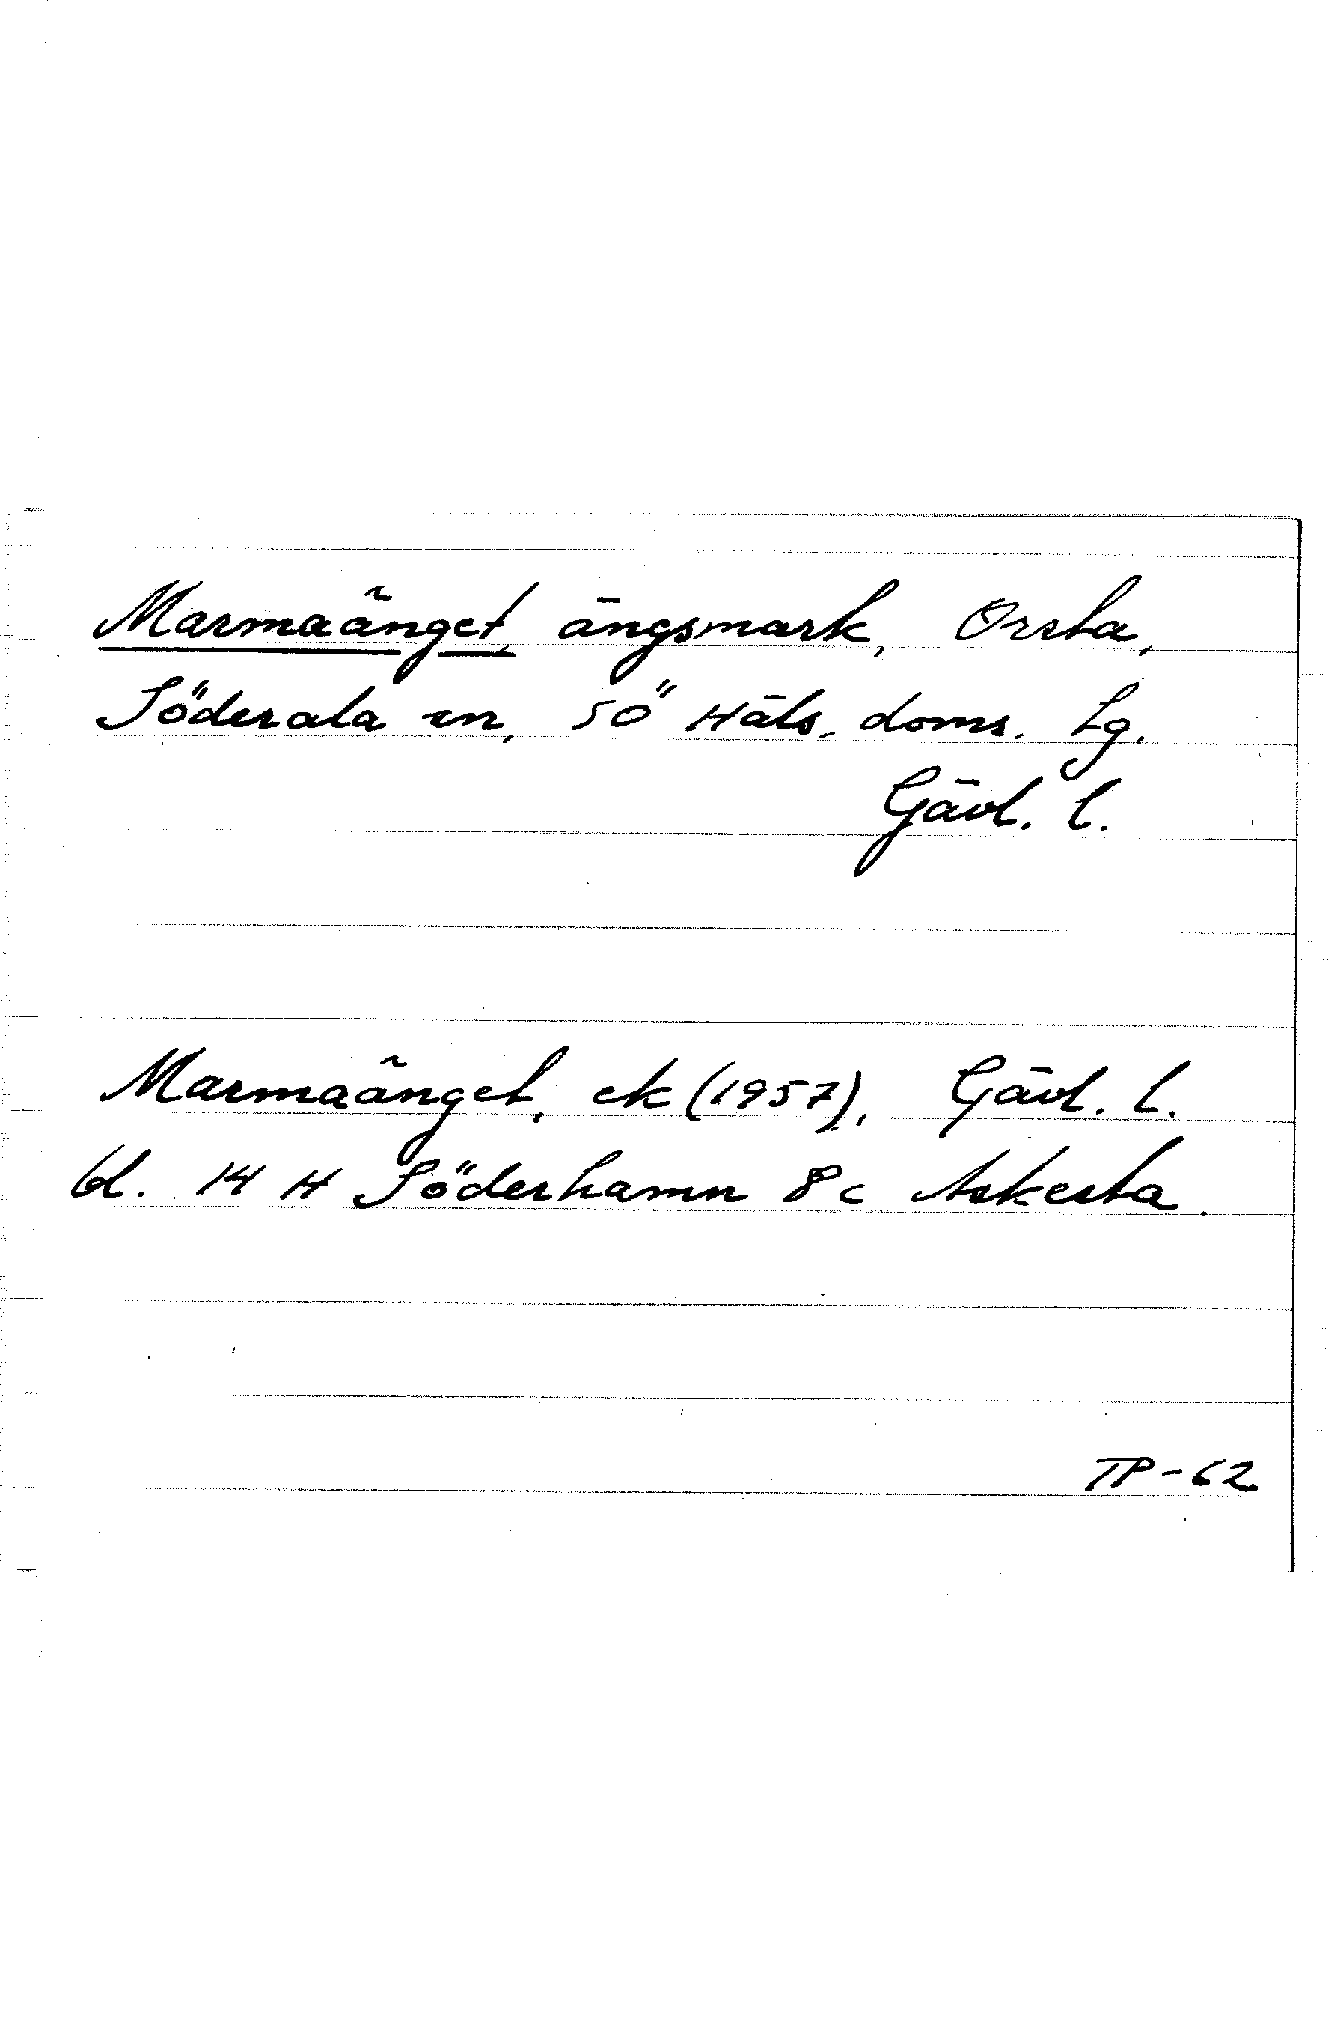 Marmaänget, ängsmark, Orsta,
Söderala sn, SÖ Häls. doms. Lg.
Gävl. l.
Marmaänget, ek (1957), Gävl. l.
bl. 14 H Söderhamn 8 c Askesta.
TP-62